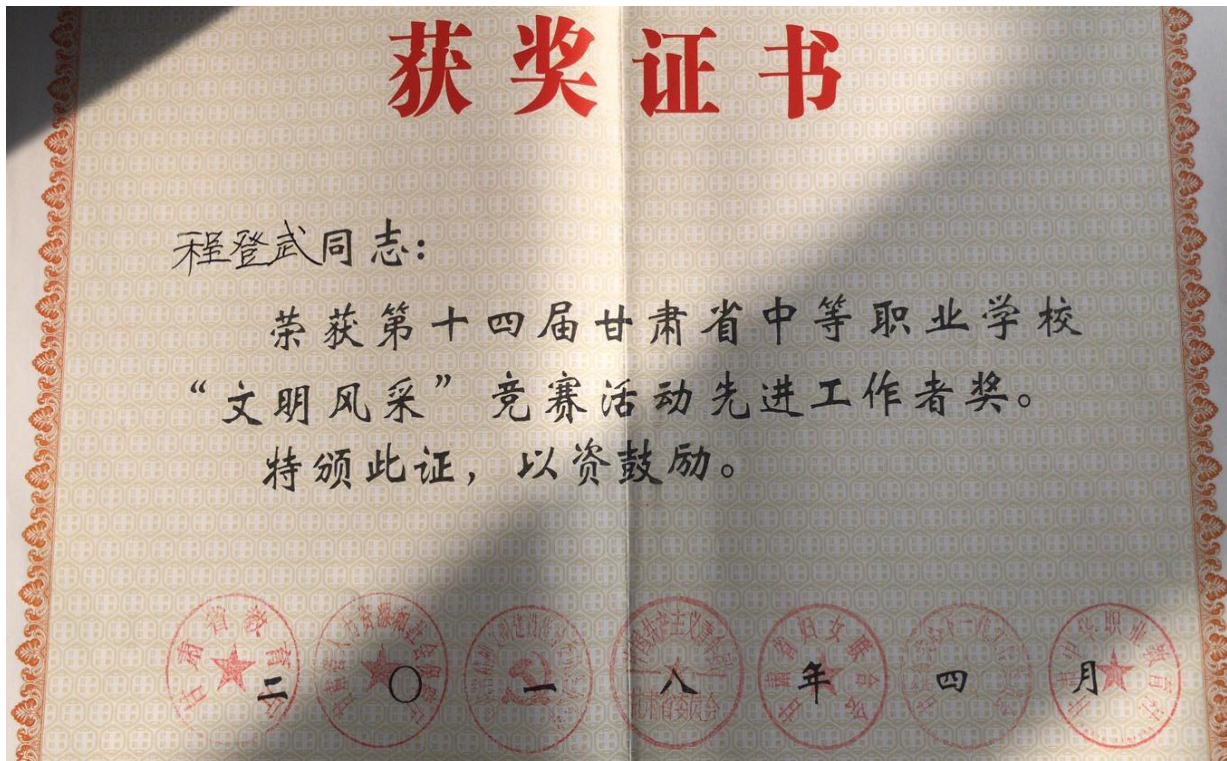 获奖证书
程登武同志：
荣获第十四届甘肃省中等职业学校
“文明风采”竞赛活动先进工作者奖。
特颁此证，以资鼓励。
二〇一八年四月
甘肃省妇女联合会